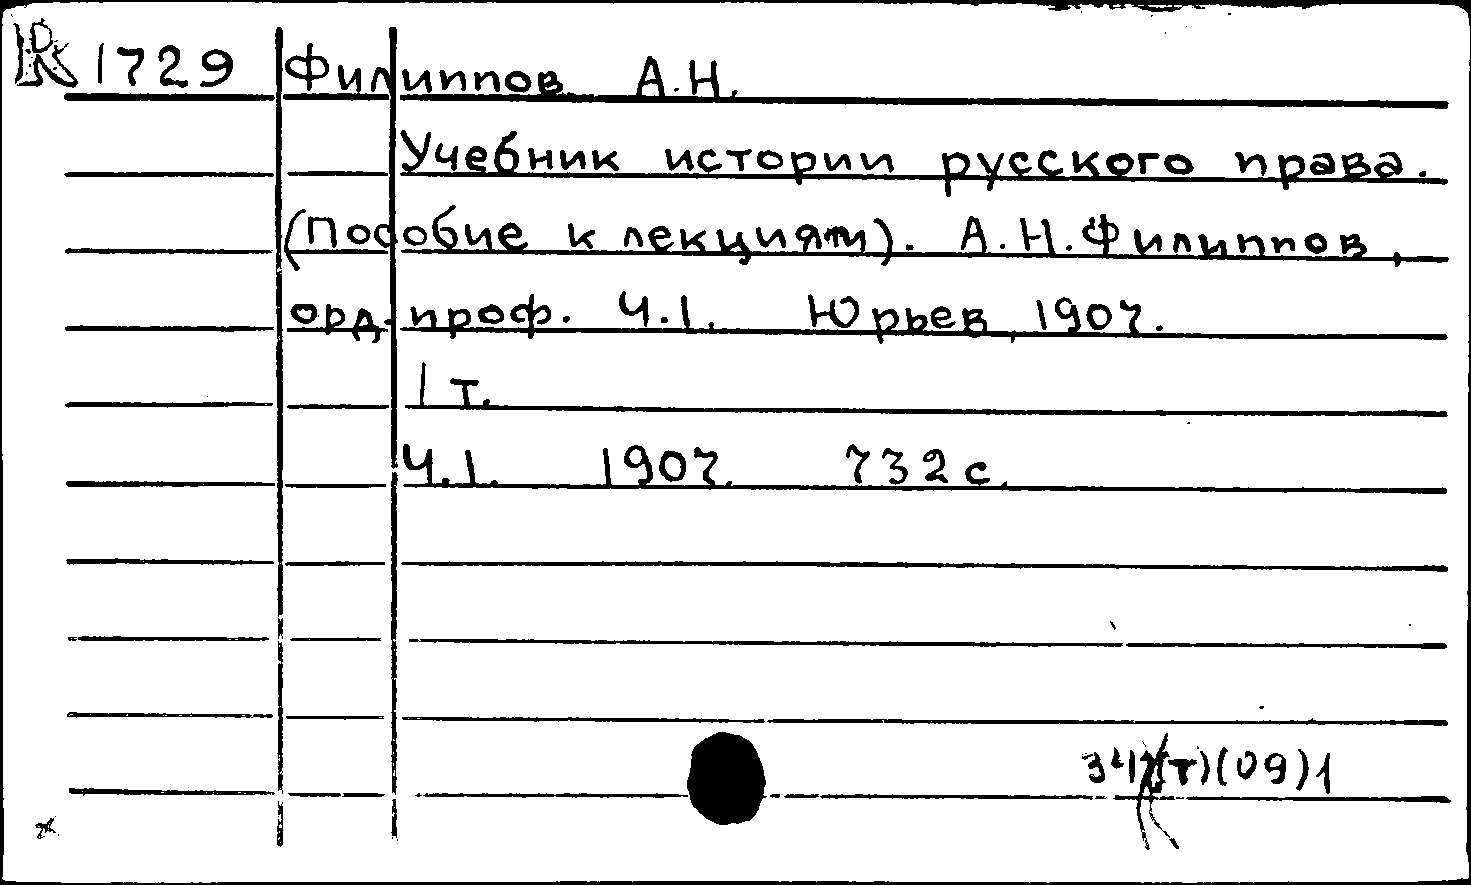 R 1729 Филиппов А.Н.
Учебник истории русского права.
(Пособие к лекциям). А.Н.Филиппов,
орд.проф. Ч.1. Юрьев, 1907.
1 т.
Ч.1. 1907. 732 с.
(т)(09)1